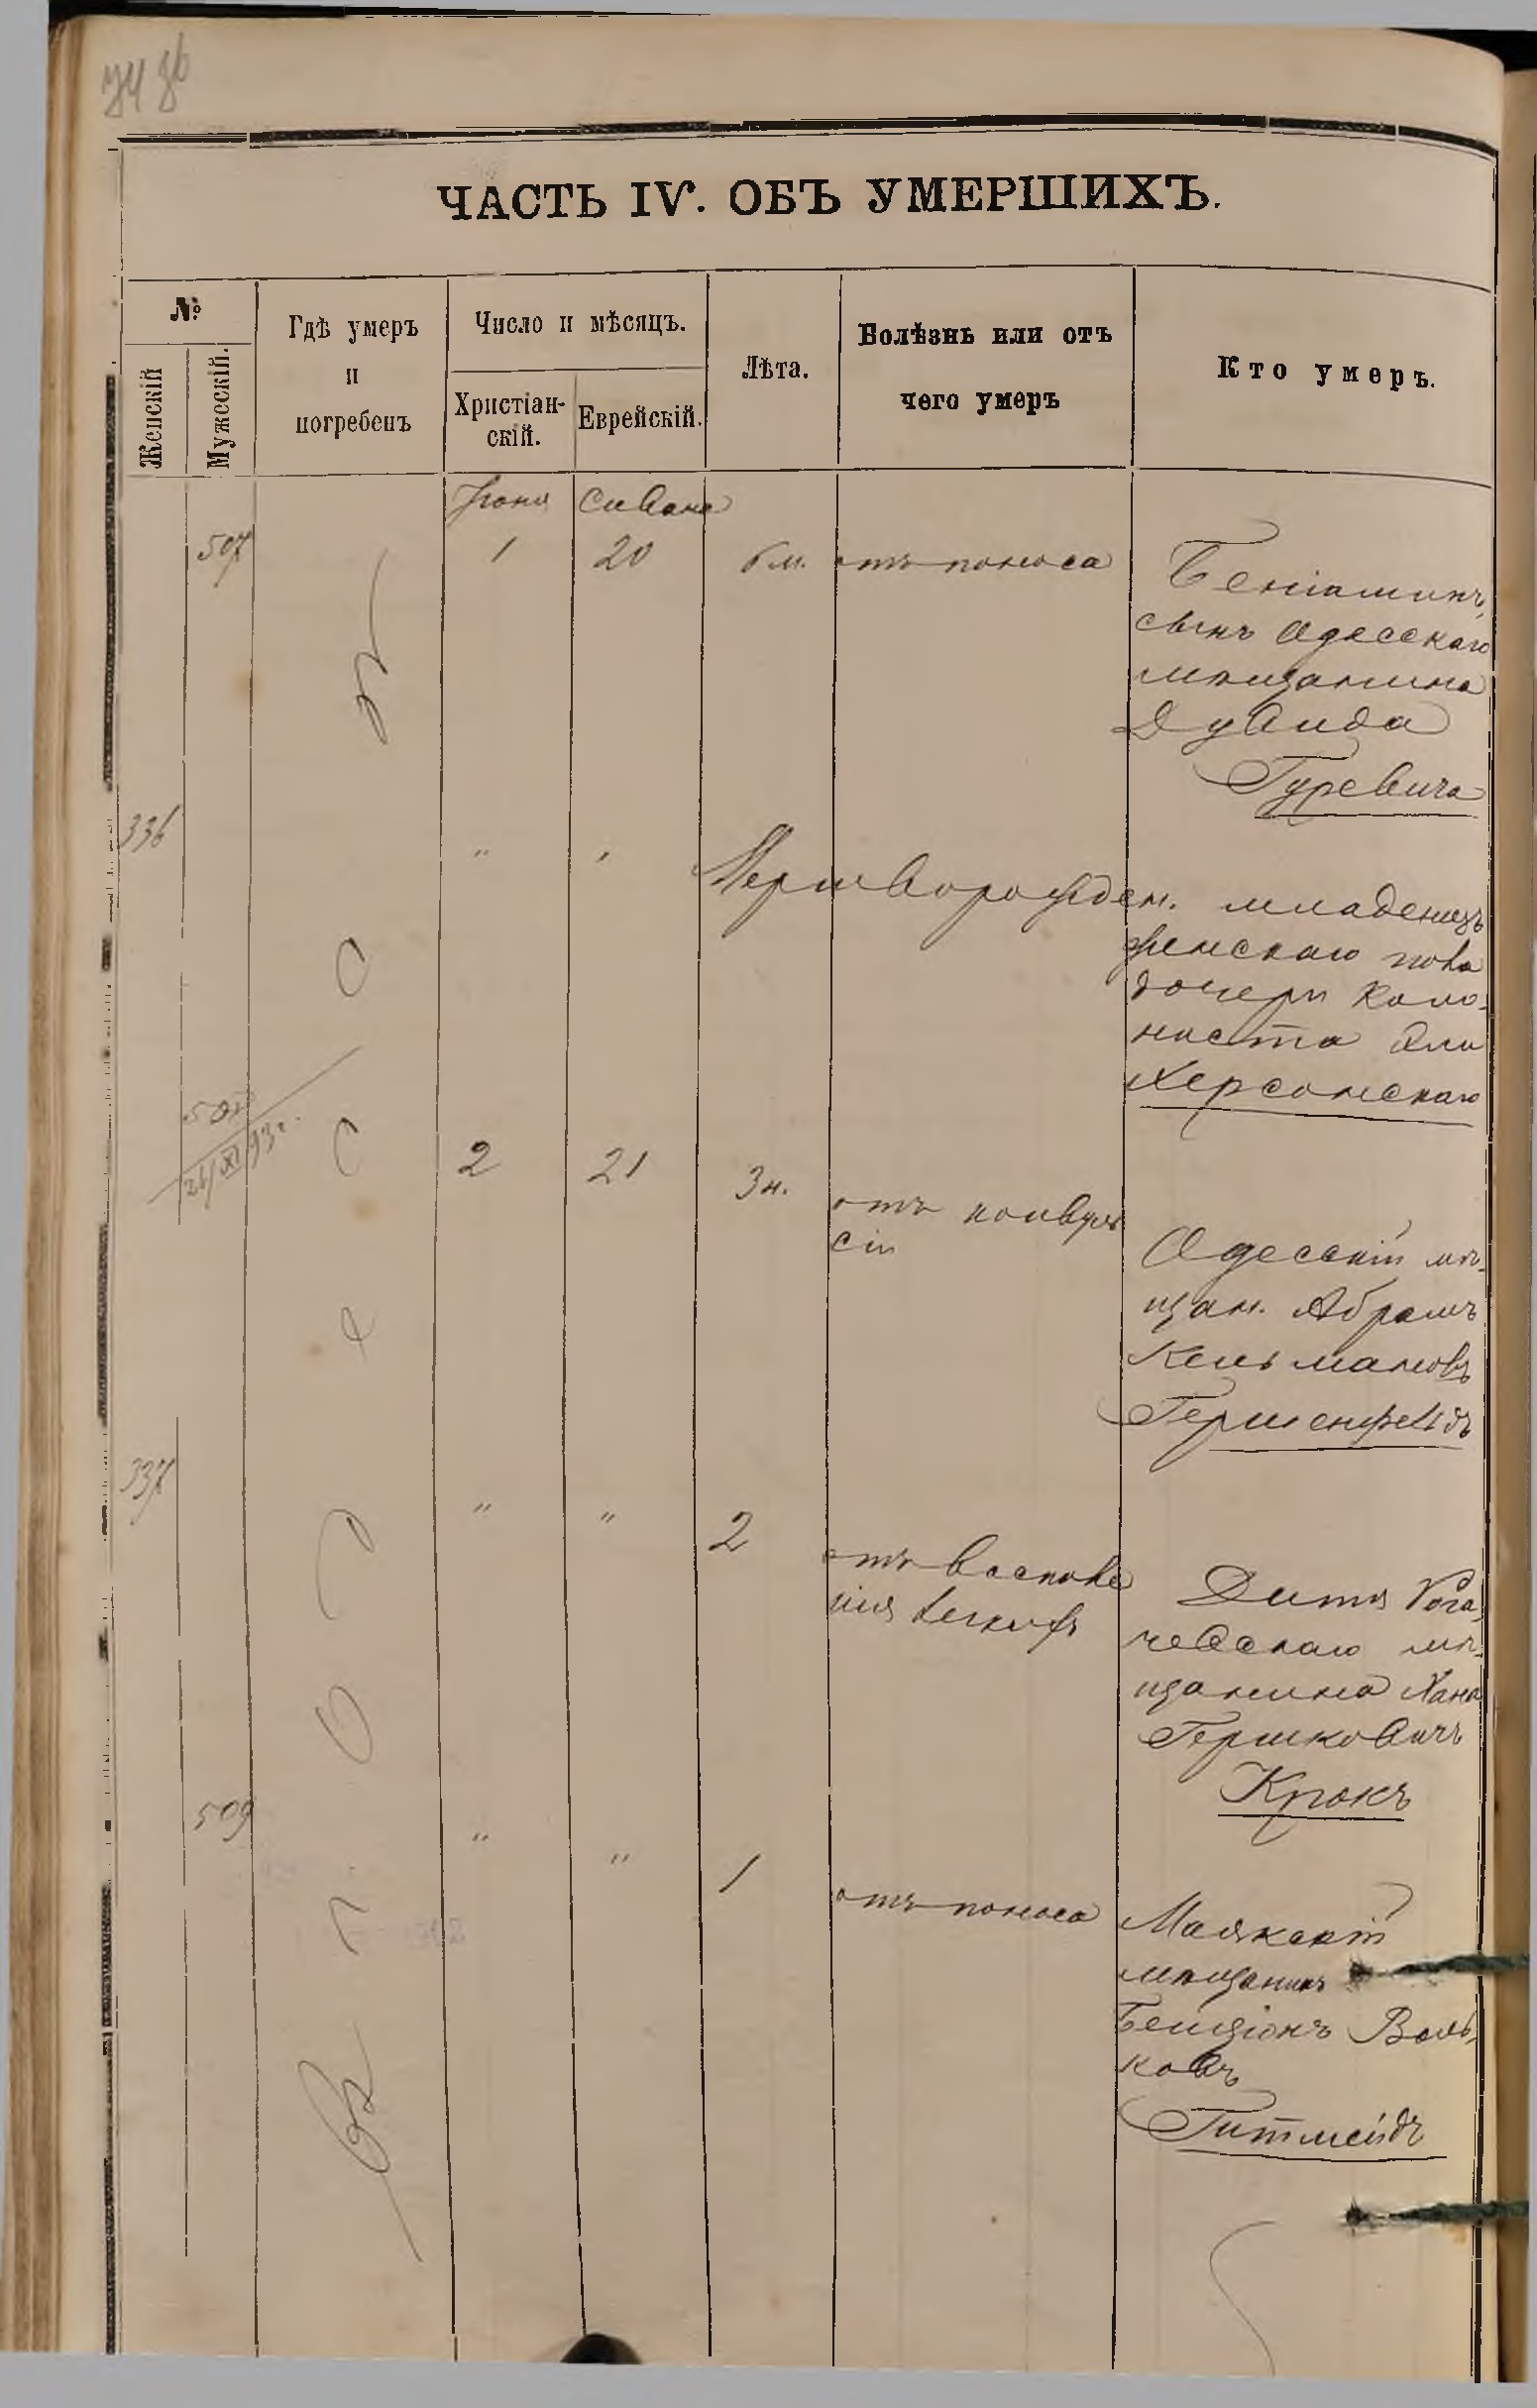 ЧАСТЬ IV. ОБЪ УМЕРШИХЪ.
№
Женскій
Мужескій.
Гдѣ умеръ
и
погребенъ
Число и мѣсяцъ.
Христіан-
скій.
Еврейскій.
Лѣта.
Болѣзнь или отъ
чего умеръ
Кто умеръ.
Іюня Сивана
507 1 20 6 м. отъ поноса
Беніаминъ,
сынъ Одесскаго
мѣщанина
Дувида
Гуревича
336 " " Мертворожден. младенецъ
женскаго пола
дочери коло-
ниста
Херсонскаго
508
26/XI 93 г.
2 21 3 н. отъ конвуль
сіи
Одесскій мѣ-
щан. Абрамъ
Кельмановъ
Гершенфельдъ
337 " " 2 отъ воспале
нія легкихъ
Дитя Рога-
чевскаго мѣ-
щанина Хана
Гершковичъ
Крокъ
509 " " 1 отъ поноса
Маякскій
мѣщанинъ
Бенціонъ Воль-
ковъ
Гитмейдъ
въ г. Одессѣ